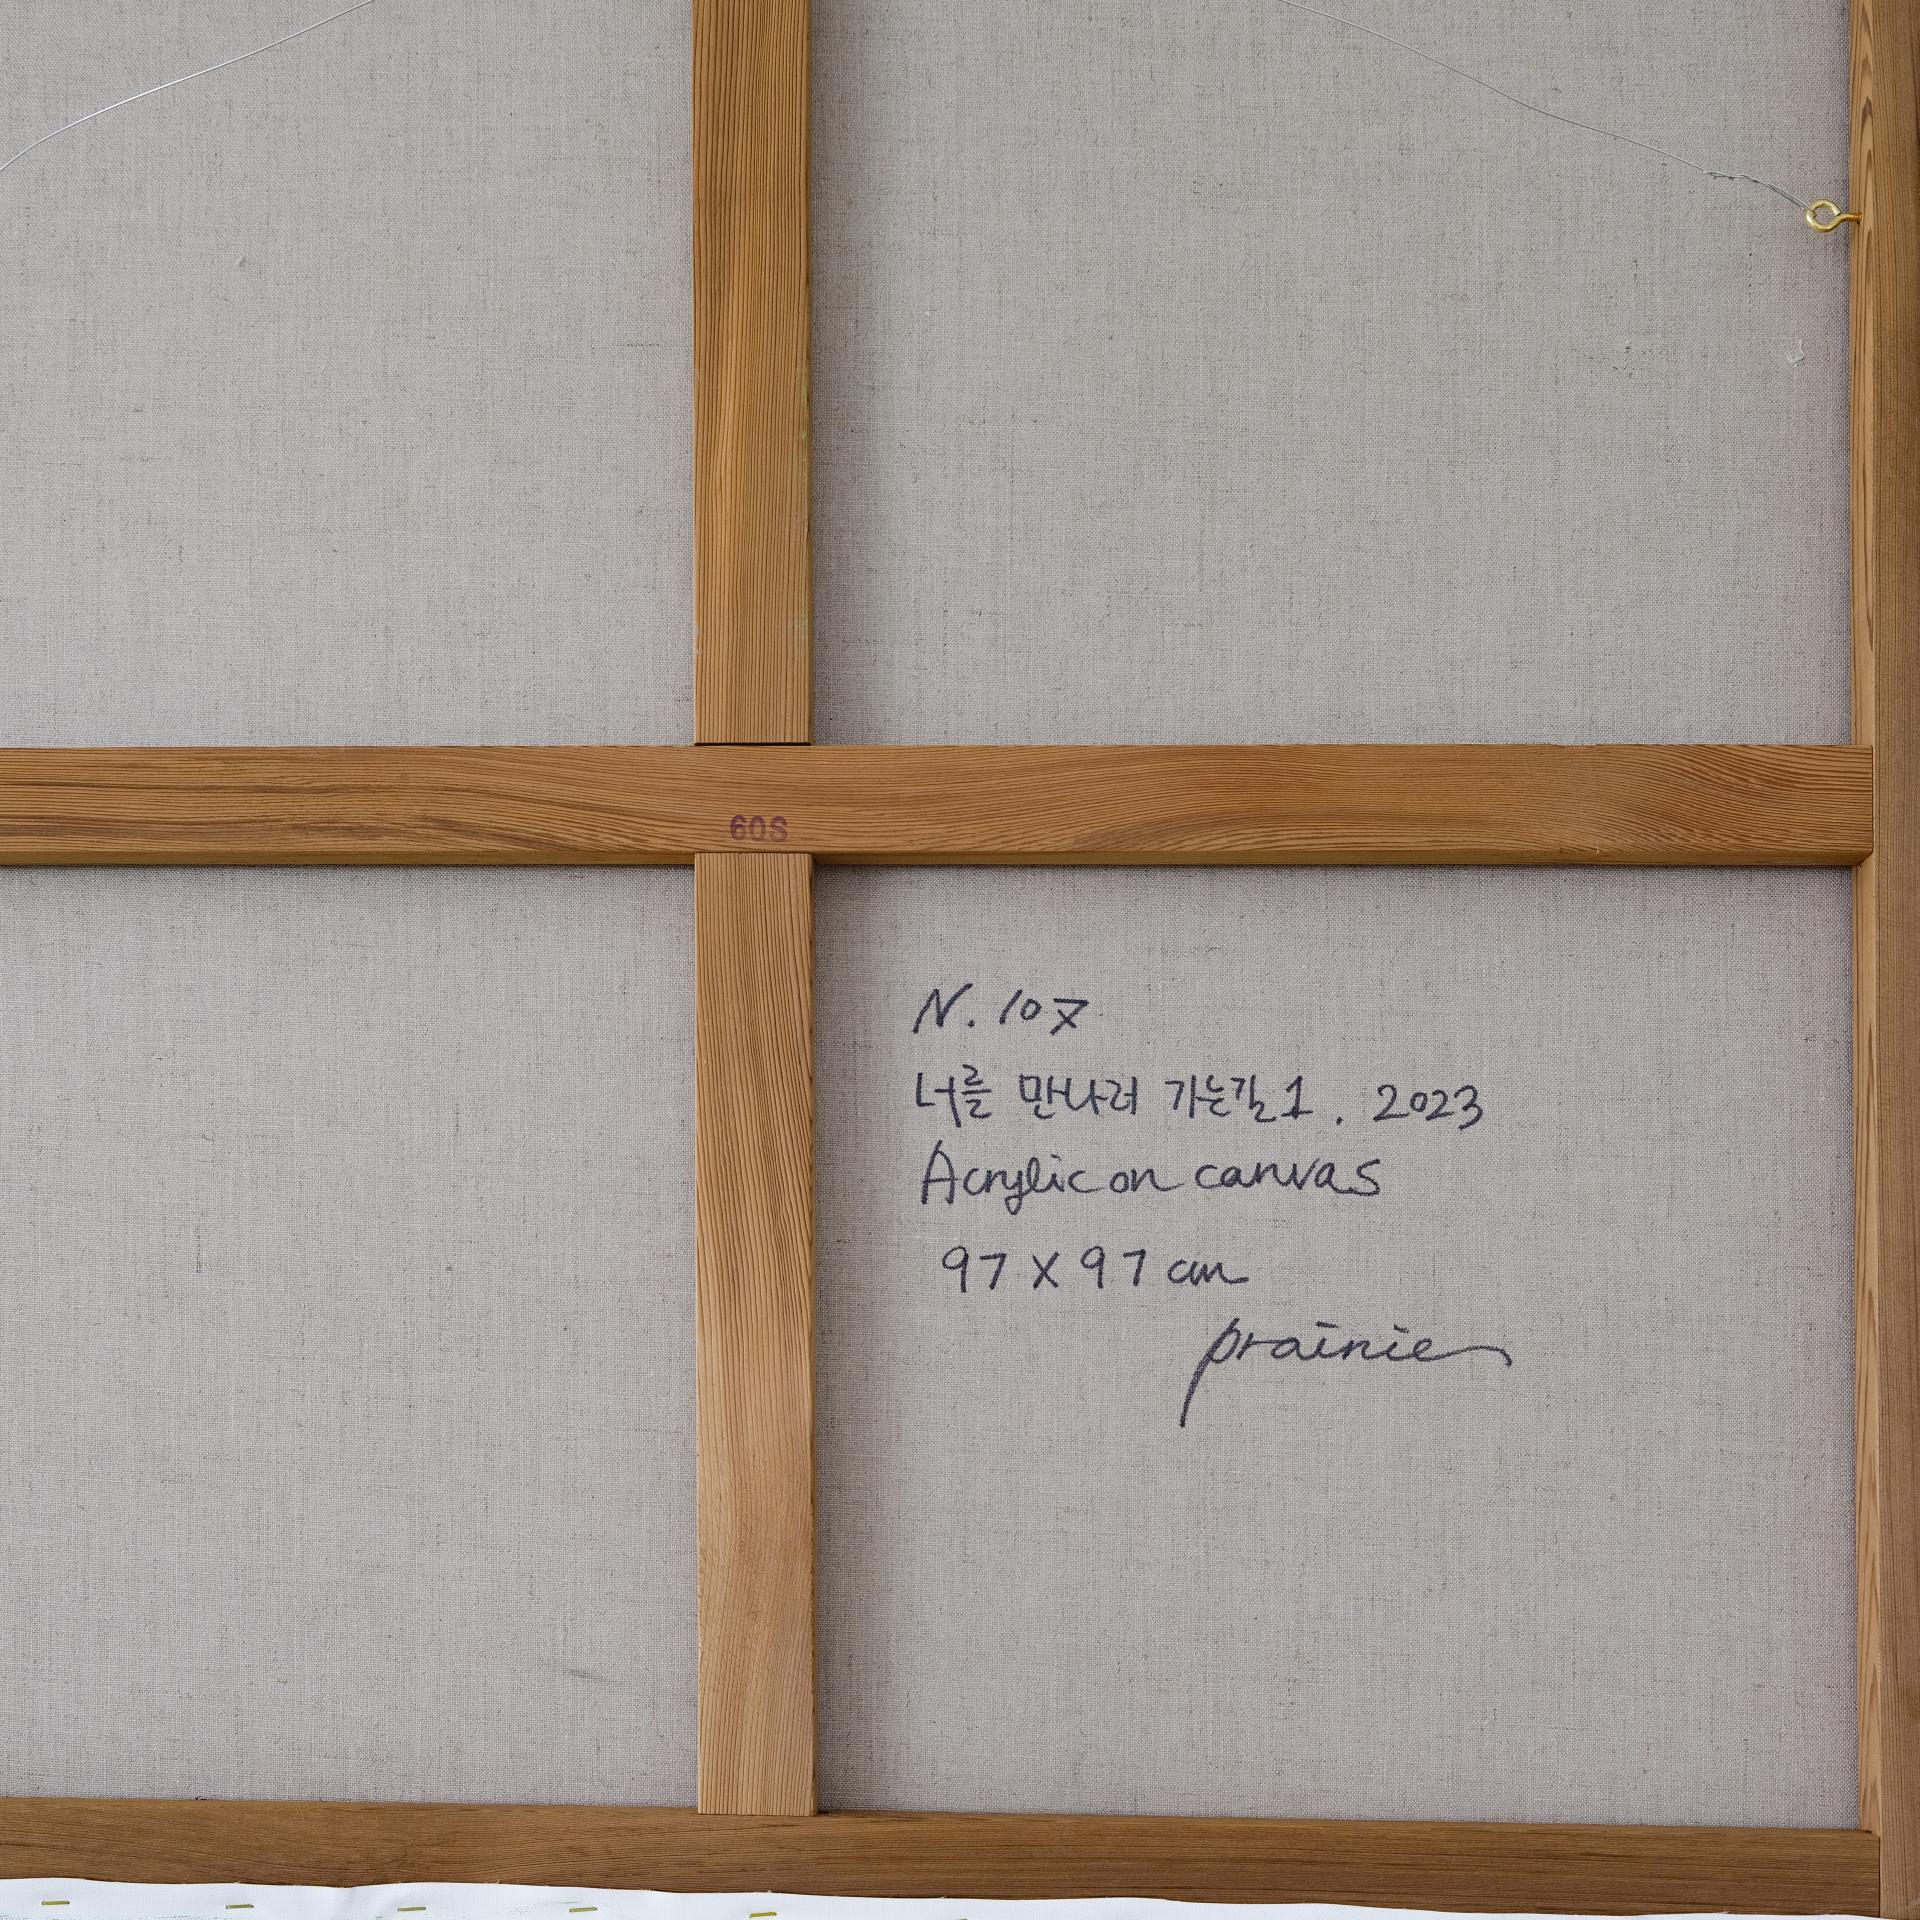 60S
N. 107
너를 만나러 가는길 1. 2023
Acrylic on canvas
97 X 97 cm
prairie